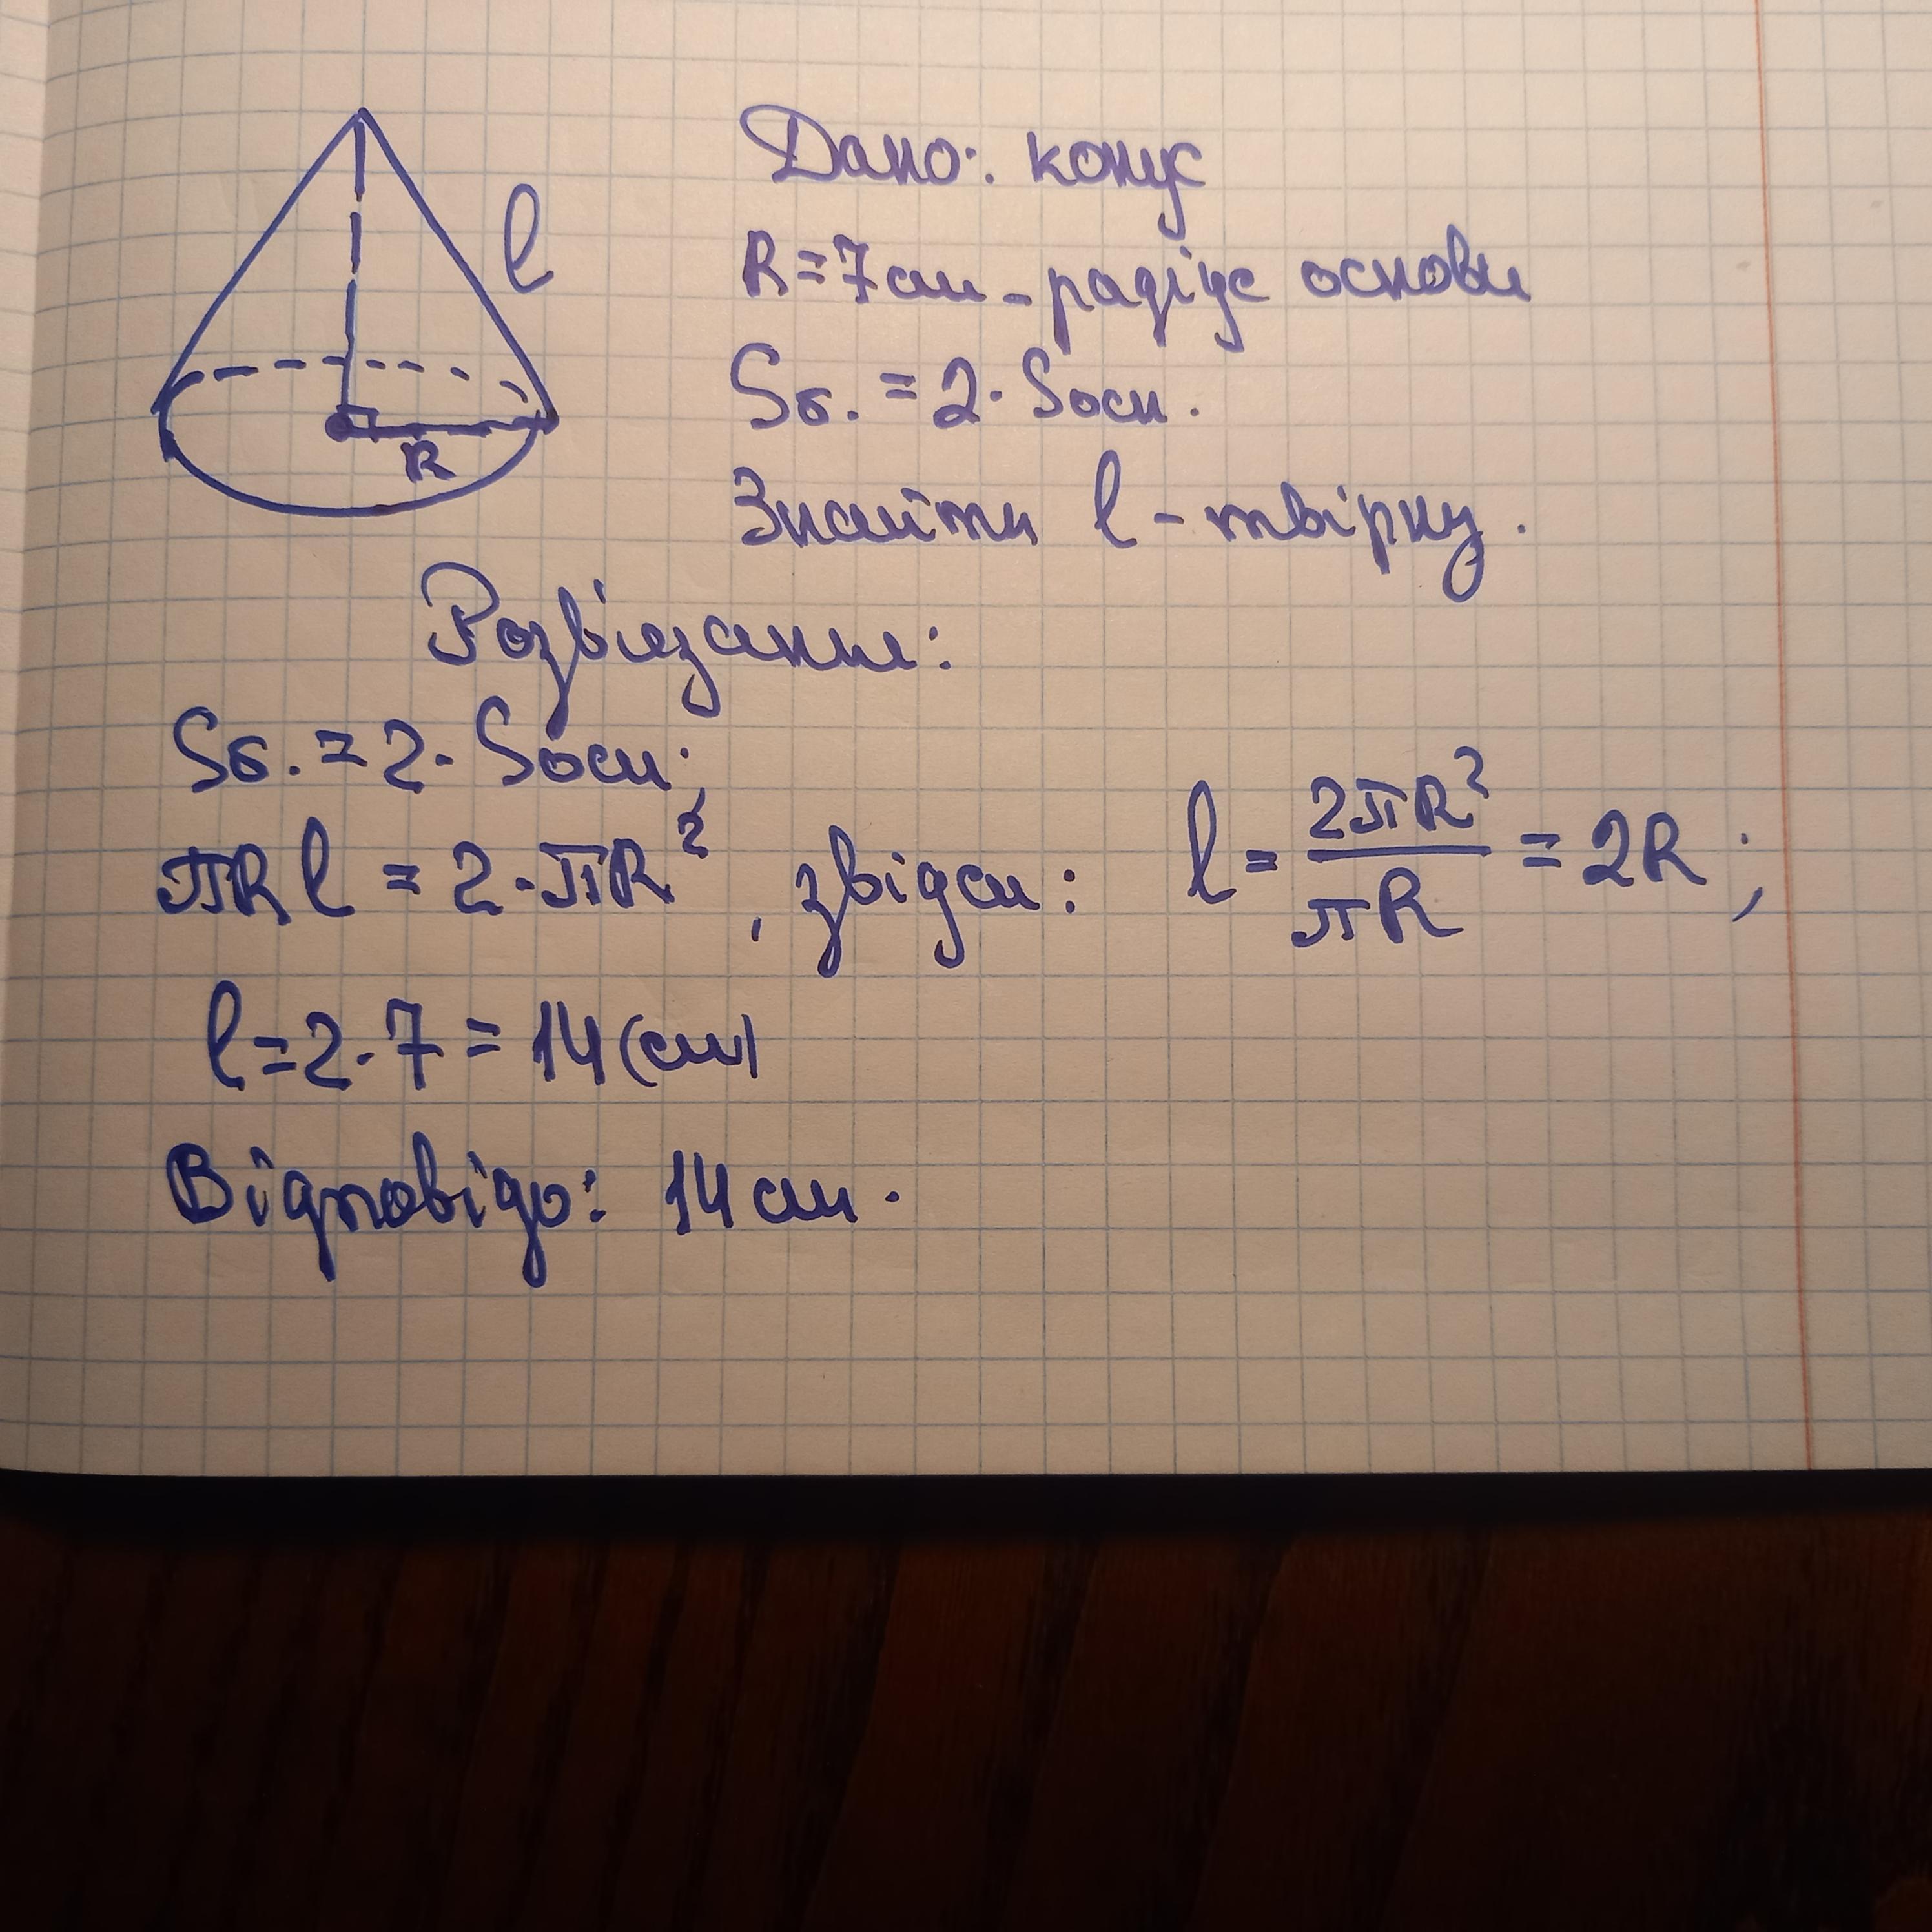 l
R
Дано: конус
R=7см - радіус основи
Sб. = 2·Sосн.
Знайти l - твірну.
Розв'язання:
Sб. = 2·Sосн;
πRl = 2·πR², звідси: l = 2πR²/πR = 2R;
l=2·7 = 14(см)
Відповідь: 14см.